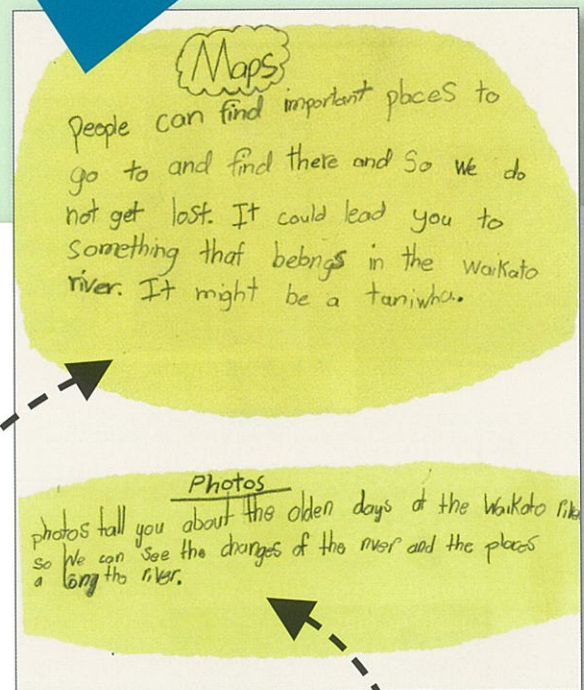 Maps
People can find important places to
go to and find there and So we do
not get lost. It could lead you to
Something that belongs in the Waikato
river. It might be a taniwha.
Photos
photos tall you about the olden days at the Waikato
so We can see the changes of the river and the places
a long the river.